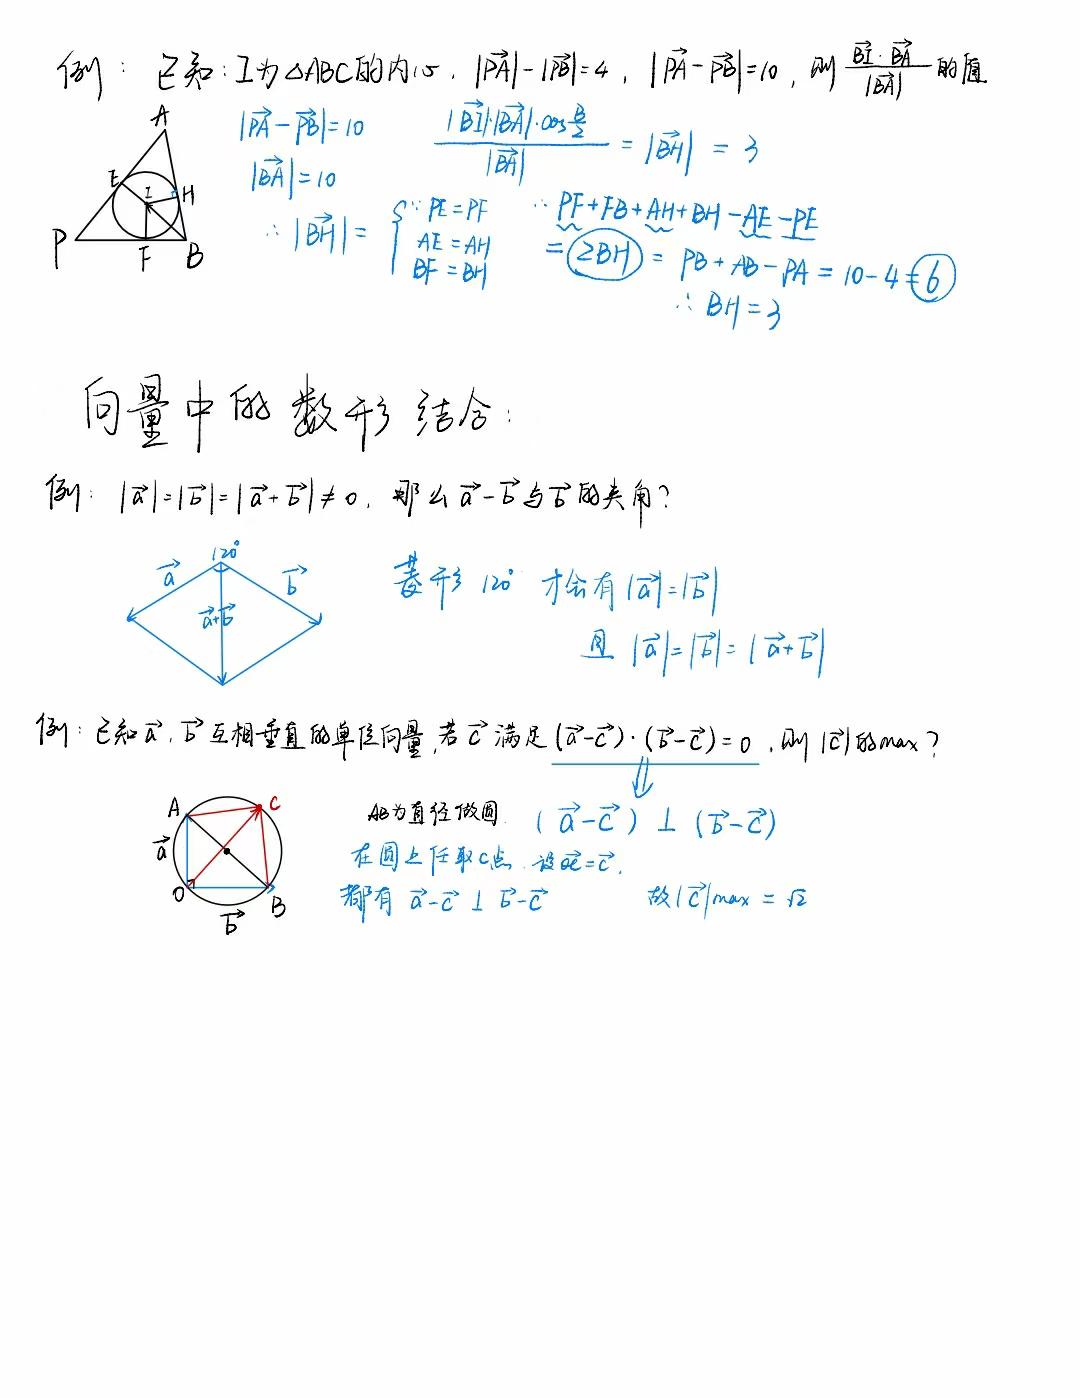 例：已知：I为△ABC的内心，|PA→|-|PB→|=4，|PA→-PB→|=10，则 BI→·BA→/|BA→| 的值
A
E
I
H
P
F
B
|PA→-PB→|=10
|BA→|=10
∴|BH→|=
|BI→|·|BA→|·cos B/2 / |BA→| = |BH→| = 3
{∵PE=PF
AE=AH
BF=BH
∵PF+FB+AH+BH-AE-PE
=2BH=PB+AB-PA=10-4=6
∴BH=3
向量中的数形结合：
例：|a→|=|b→|=|a→+b→|≠0，那么a→-b→与b→的夹角？
120°
a→
b→
a→+b→
菱形120° 才会有|a→|=|b→|
且|a→|=|b→|=|a→+b→|
例：已知a→，b→互相垂直的单位向量，若c→满足(a→-c→)·(b→-c→)=0，则|c→|的max？
⇓
A
C
a→
O
B
b→
AB为直径做圆 (a→-c→)⊥(b→-c→)
在圆上任取C点，设OC→=c→，
都有a→-c→⊥b→-c→ 故|c→|max=√2